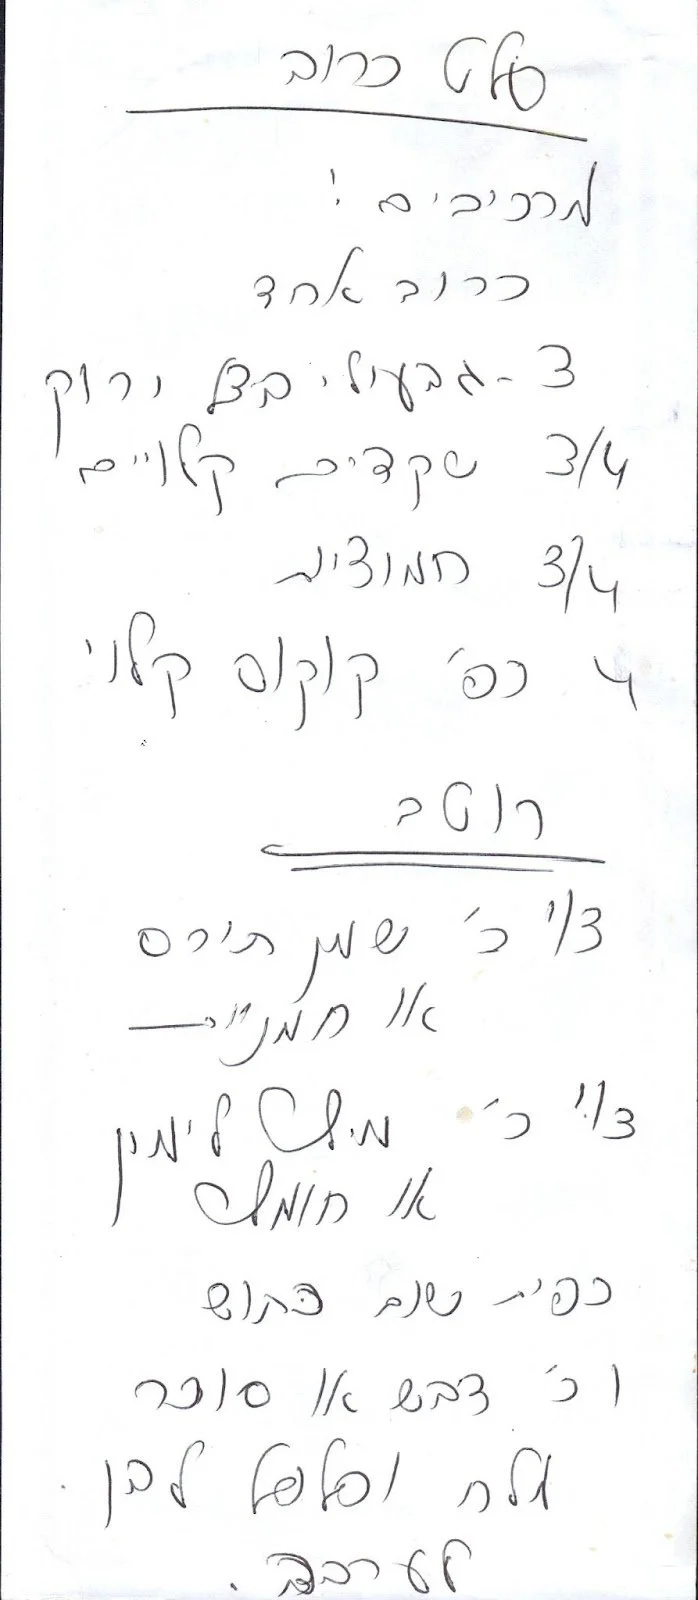 סלט כרוב
מרכיבים:
כרוב אחד
3 - גבעולי בצל ירוק
3/4 שקדים קלויים
3/4 חמוציות
4 כפ' קוקוס קלוי
רוטב
1/3 כ' שמן תירס
או חמניות
1/3 כ' מיץ לימון
או חומץ
כפית שום כתוש
1 כ' דבש או סוכר
מלח ופלפל לבן
לערבב.